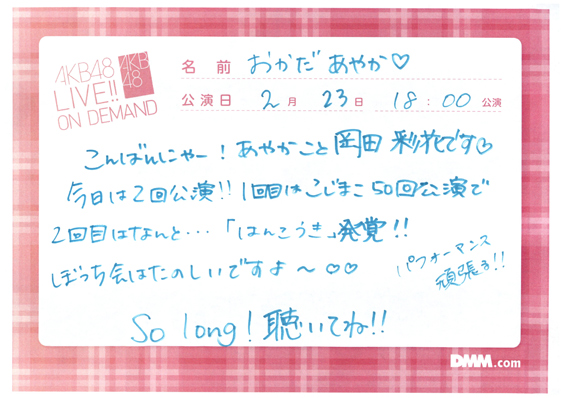 AKB48
LIVE!!
ON DEMAND
AKB
48
名前 おかだ あやか♡
公演日 2月 23日 18:00 公演
こんばんにゃー！あやかこと岡田 彩花です♡
今日は2回公演!! 1回目はこじまこ50回公演で
2回目はなんと…「はんこうき」発覚!!
ぼっち会はたのしいですよ〜♡♡
パフォーマンス
頑張る!!
So long! 聴いてね!!
DMM.com